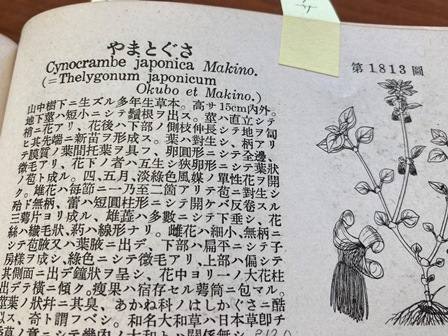 やまとぐさ
Cynocrambe japonica Makino.
(=Thelygonum japonicum
Okubo et Makino.)
第1813圖
山中樹下ニ生ズル多年生草本。高サ15cm内外。
地下莖ハ短小ニシテ鬚根ヲ出ス。莖ハ直立シテ
梢ニ花アリ、花後ハ下部ノ側枝伸長シテ地ヲ匐
ヒ其先端ニ新苗ヲ形成ス。葉ハ對生シ、柄アリ
テ膜質ノ葉間托葉ヲ具フ。卵圓形ニシテ全邊、
微毛アリ、花下ノ者ハ五生シ狹卵形ニシテ葉狀
ノ苞ト成ル。四、五月、淡綠色風媒ノ單性花ヲ開
ク。雄花ハ每節ニ一乃至二箇アリテ苞ニ對生シ
殆ド無柄、蕾ハ短圓柱形ニシテ開ケバ反卷スル
三萼片ヨリ成ル、雄蕋ハ多數ニシテ下垂シ、花
絲ハ纎毛狀、葯ハ線形ナリ。雌花ハ細小、無柄ニ
シテ苞腋又ハ葉腋ニ出デ、下部ハ扁平ニシテ子
房樣ヲ成シ、綠色ニシテ微毛アリ、上部ハ偏シテ
其側面ニ出デ鐘狀ヲ呈シ、花中ヨリ一ノ大花柱
出デテ橫ニ傾ク。瘦果ハ宿存セル萼筒ニ包マル。
莖葉ノ狀幷ニ其臭、あかね科ノはしかぐさニ酷
以ス、奇ト謂フベシ。和名大和草ハ日本草卽チ